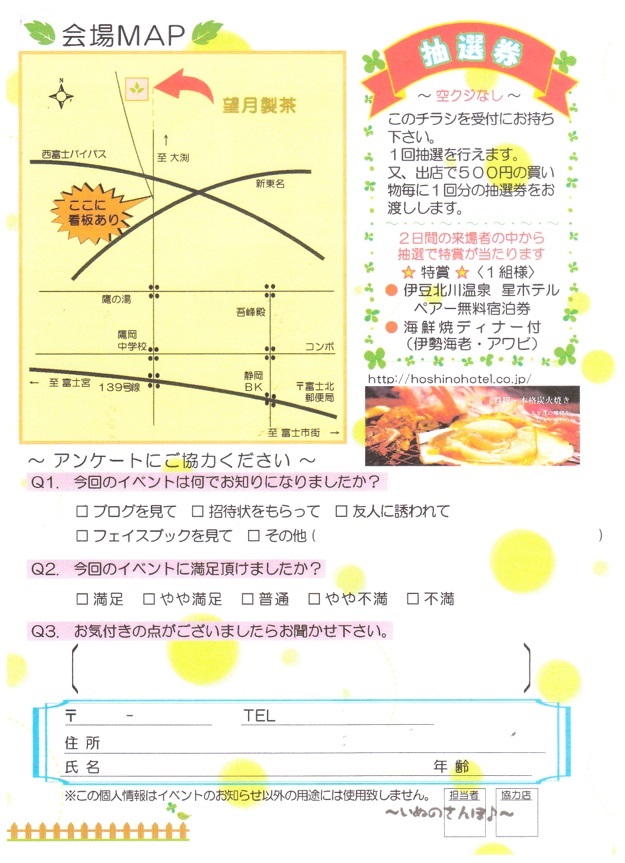 会場MAP
N
望月製茶
西富士バイパス
↑
至 大渕
新東名
ここに
看板あり
鷹の湯
吾峰殿
鷹岡
中学校
コンボ
← 至 富士宮
139号線
静岡
BK
〒富士北
郵便局
至 富士市街 →
抽選券
～ 空クジなし ～
このチラシを受付にお持ち
下さい。
1回抽選を行えます。
又、出店で500円の買い
物毎に1回分の抽選券をお
渡しします。
2日間の来場者の中から
抽選で特賞が当たります
★ 特賞 ★〈1組様〉
● 伊豆北川温泉 星ホテル
ペアー無料宿泊券
● 海鮮焼ディナー付
（伊勢海老・アワビ）
http://hoshinohotel.co.jp/
本格炭火焼き
～ アンケートにご協力ください ～
Q1. 今回のイベントは何でお知りになりましたか？
□ ブログを見て □ 招待状をもらって □ 友人に誘われて
□ フェイスブックを見て □ その他 ( )
Q2. 今回のイベントに満足頂けましたか？
□ 満足 □ やや満足 □ 普通 □ やや不満 □ 不満
Q3. お気付きの点がございましたらお聞かせ下さい。
〒 - TEL
住 所
氏 名 年 齢
※この個人情報はイベントのお知らせ以外の用途には使用致しません。
担当者 協力店
～いぬのさんぽ♪～